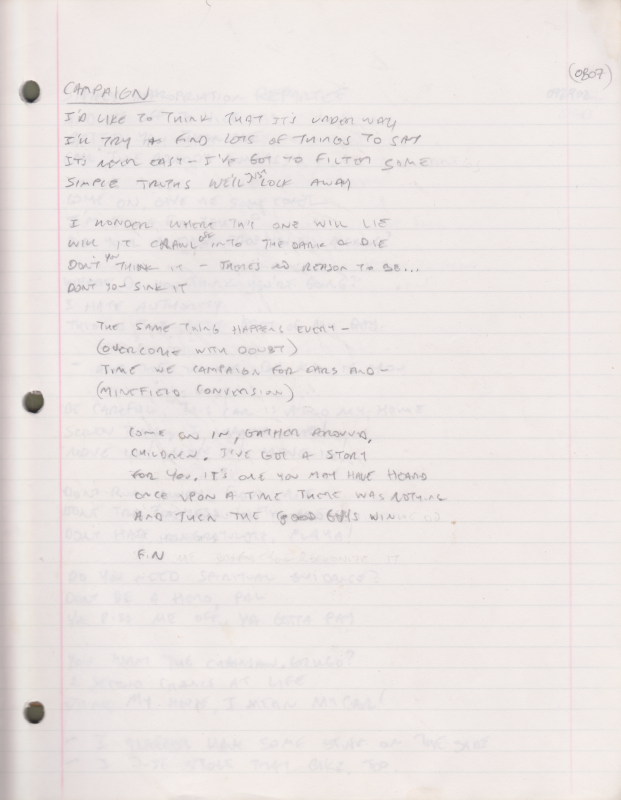 (0807)
CAMPAIGN
I'D LIKE TO THINK THAT IT'S UNDER WAY
I'LL TRY TO FIND LOTS OF THINGS TO SAY
IT'S NEVER EASY - I'VE GOT TO FILTER SOME
SIMPLE TRUTHS WE'LL JUST LOCK AWAY
I WONDER WHERE THIS ONE WILL LIE
WILL IT CRAWL OFF INTO THE DARK & DIE
DON'T YOU THINK IT - THERE'S NO REASON TO BE...
DON'T YOU SINK IT
THE SAME THING HAPPENS EVERY -
(OVERCOME WITH DOUBT)
TIME WE CAMPAIGN FOR EARS AND -
(MINEFIELD CONVERSION)
COME ON IN, GATHER AROUND,
CHILDREN. I'VE GOT A STORY
FOR YOU. IT'S ONE YOU MAY HAVE HEARD
ONCE UPON A TIME THERE WAS NOTHING
AND THEN THE GOOD GUYS WIN.
FIN